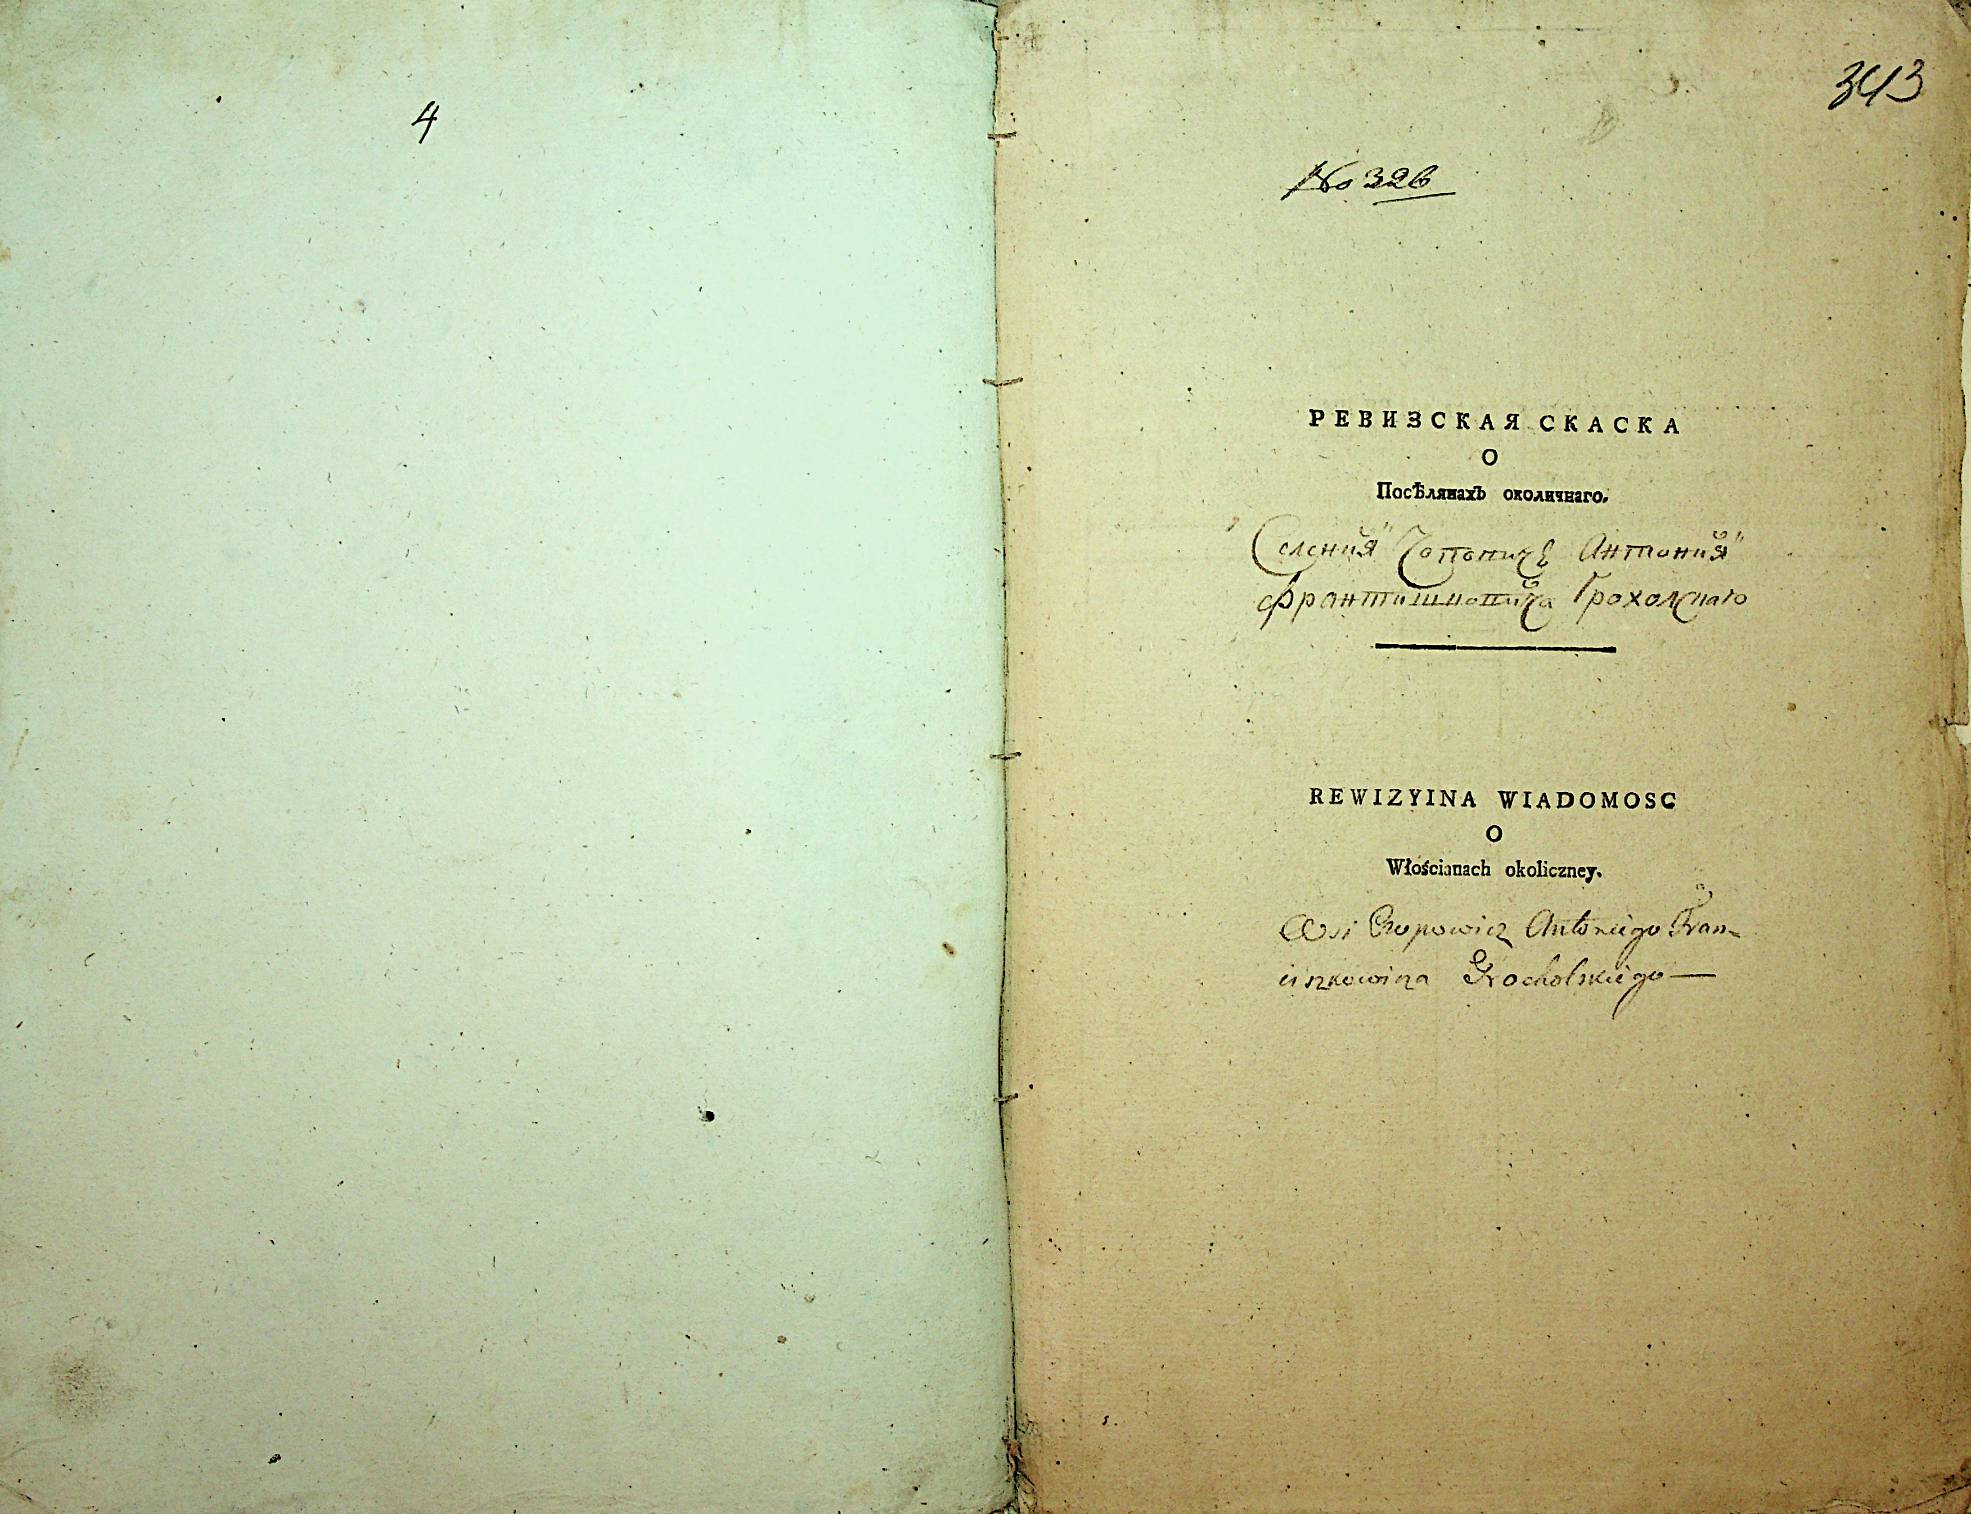 4
343
No 326
РЕВИЗСКАЯ СКАСКА
О
Посѣлянахъ околичнаго.
Селения Чоповичь Антония
Франтишковича Грохолскаго
REWIZYINA WIADOMOSC
O
Włościanach okoliczney.
Wsi Czopowicz Antoniego Fran
ciszkowicza Grocholskiego